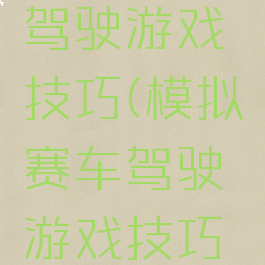 驾驶游戏
技巧(模拟
赛车驾驶
游戏技巧